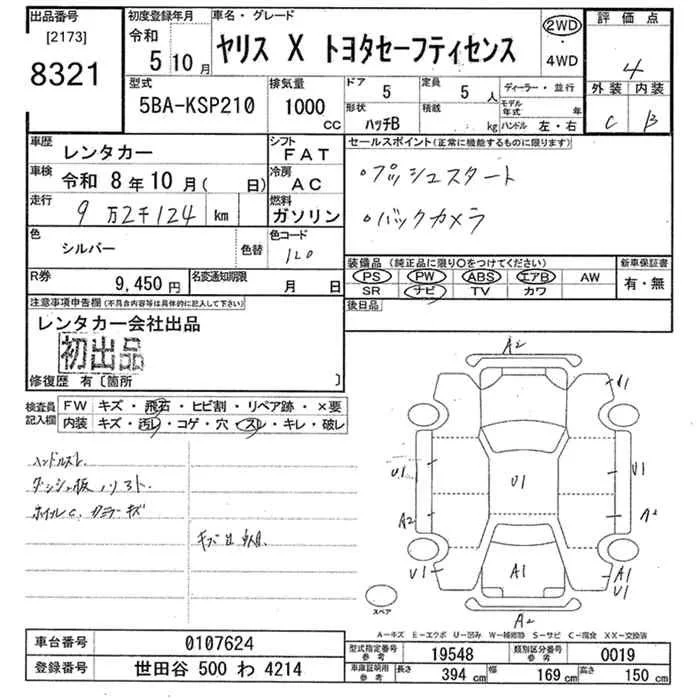 出品番号
[2173]
8321
初度登録年月
令和
5 10 月
車名・グレード
ヤリス X トヨタセーフティセンス
2WD
・
4WD
評価点
4
外装 内装
C B
型式
5BA-KSP210
排気量
1000
CC
ドア
5
定員
5 人
形状
ハッチB
積載
kg
ディーラー・並行
モデル年式 年
ハンドル 左・右
車歴
レンタカー
シフト
FAT
車検
令和 8 年 10 月( 日)
冷房
AC
走行
9 万 2千 124 km
燃料
ガソリン
色
シルバー
色替
色コード
1L0
R券
9,450 円
名変通知期限
月 日
セールスポイント(正常に機能するものに限ります)
・プッシュスタート
・バックカメラ
装備品(純正品に限り○をつけてください)
PS PW ABS エアB AW
SR ナビ TV カワ
新車保証書
有・無
後日品
注意事項申告欄(不具合内容等は具体的に記入して下さい)
レンタカー会社出品
初出品
修復歴 有〔箇所 〕
検査員
記入欄
FW キズ・飛石・ヒビ割・リペア跡・×要
内装 キズ・汚レ・コゲ・穴・スレ・キレ・破レ
ハンドルスレ
ダッシュ板ハリスト
ホイルC、カラーキズ
A2
U1
U1
U1
A2
A2
U1
A1
A1
U1
A2
スペア
A-キズ E-エクボ U-凹み W-補修跡 S-サビ C-腐食 XX-交換済
車台番号
0107624
登録番号
世田谷 500 わ 4214
型式指定番号
参考
19548
類別区分番号
参考
0019
車庫証明用
参考
長さ
394 cm
幅
169 cm
高さ
150 cm